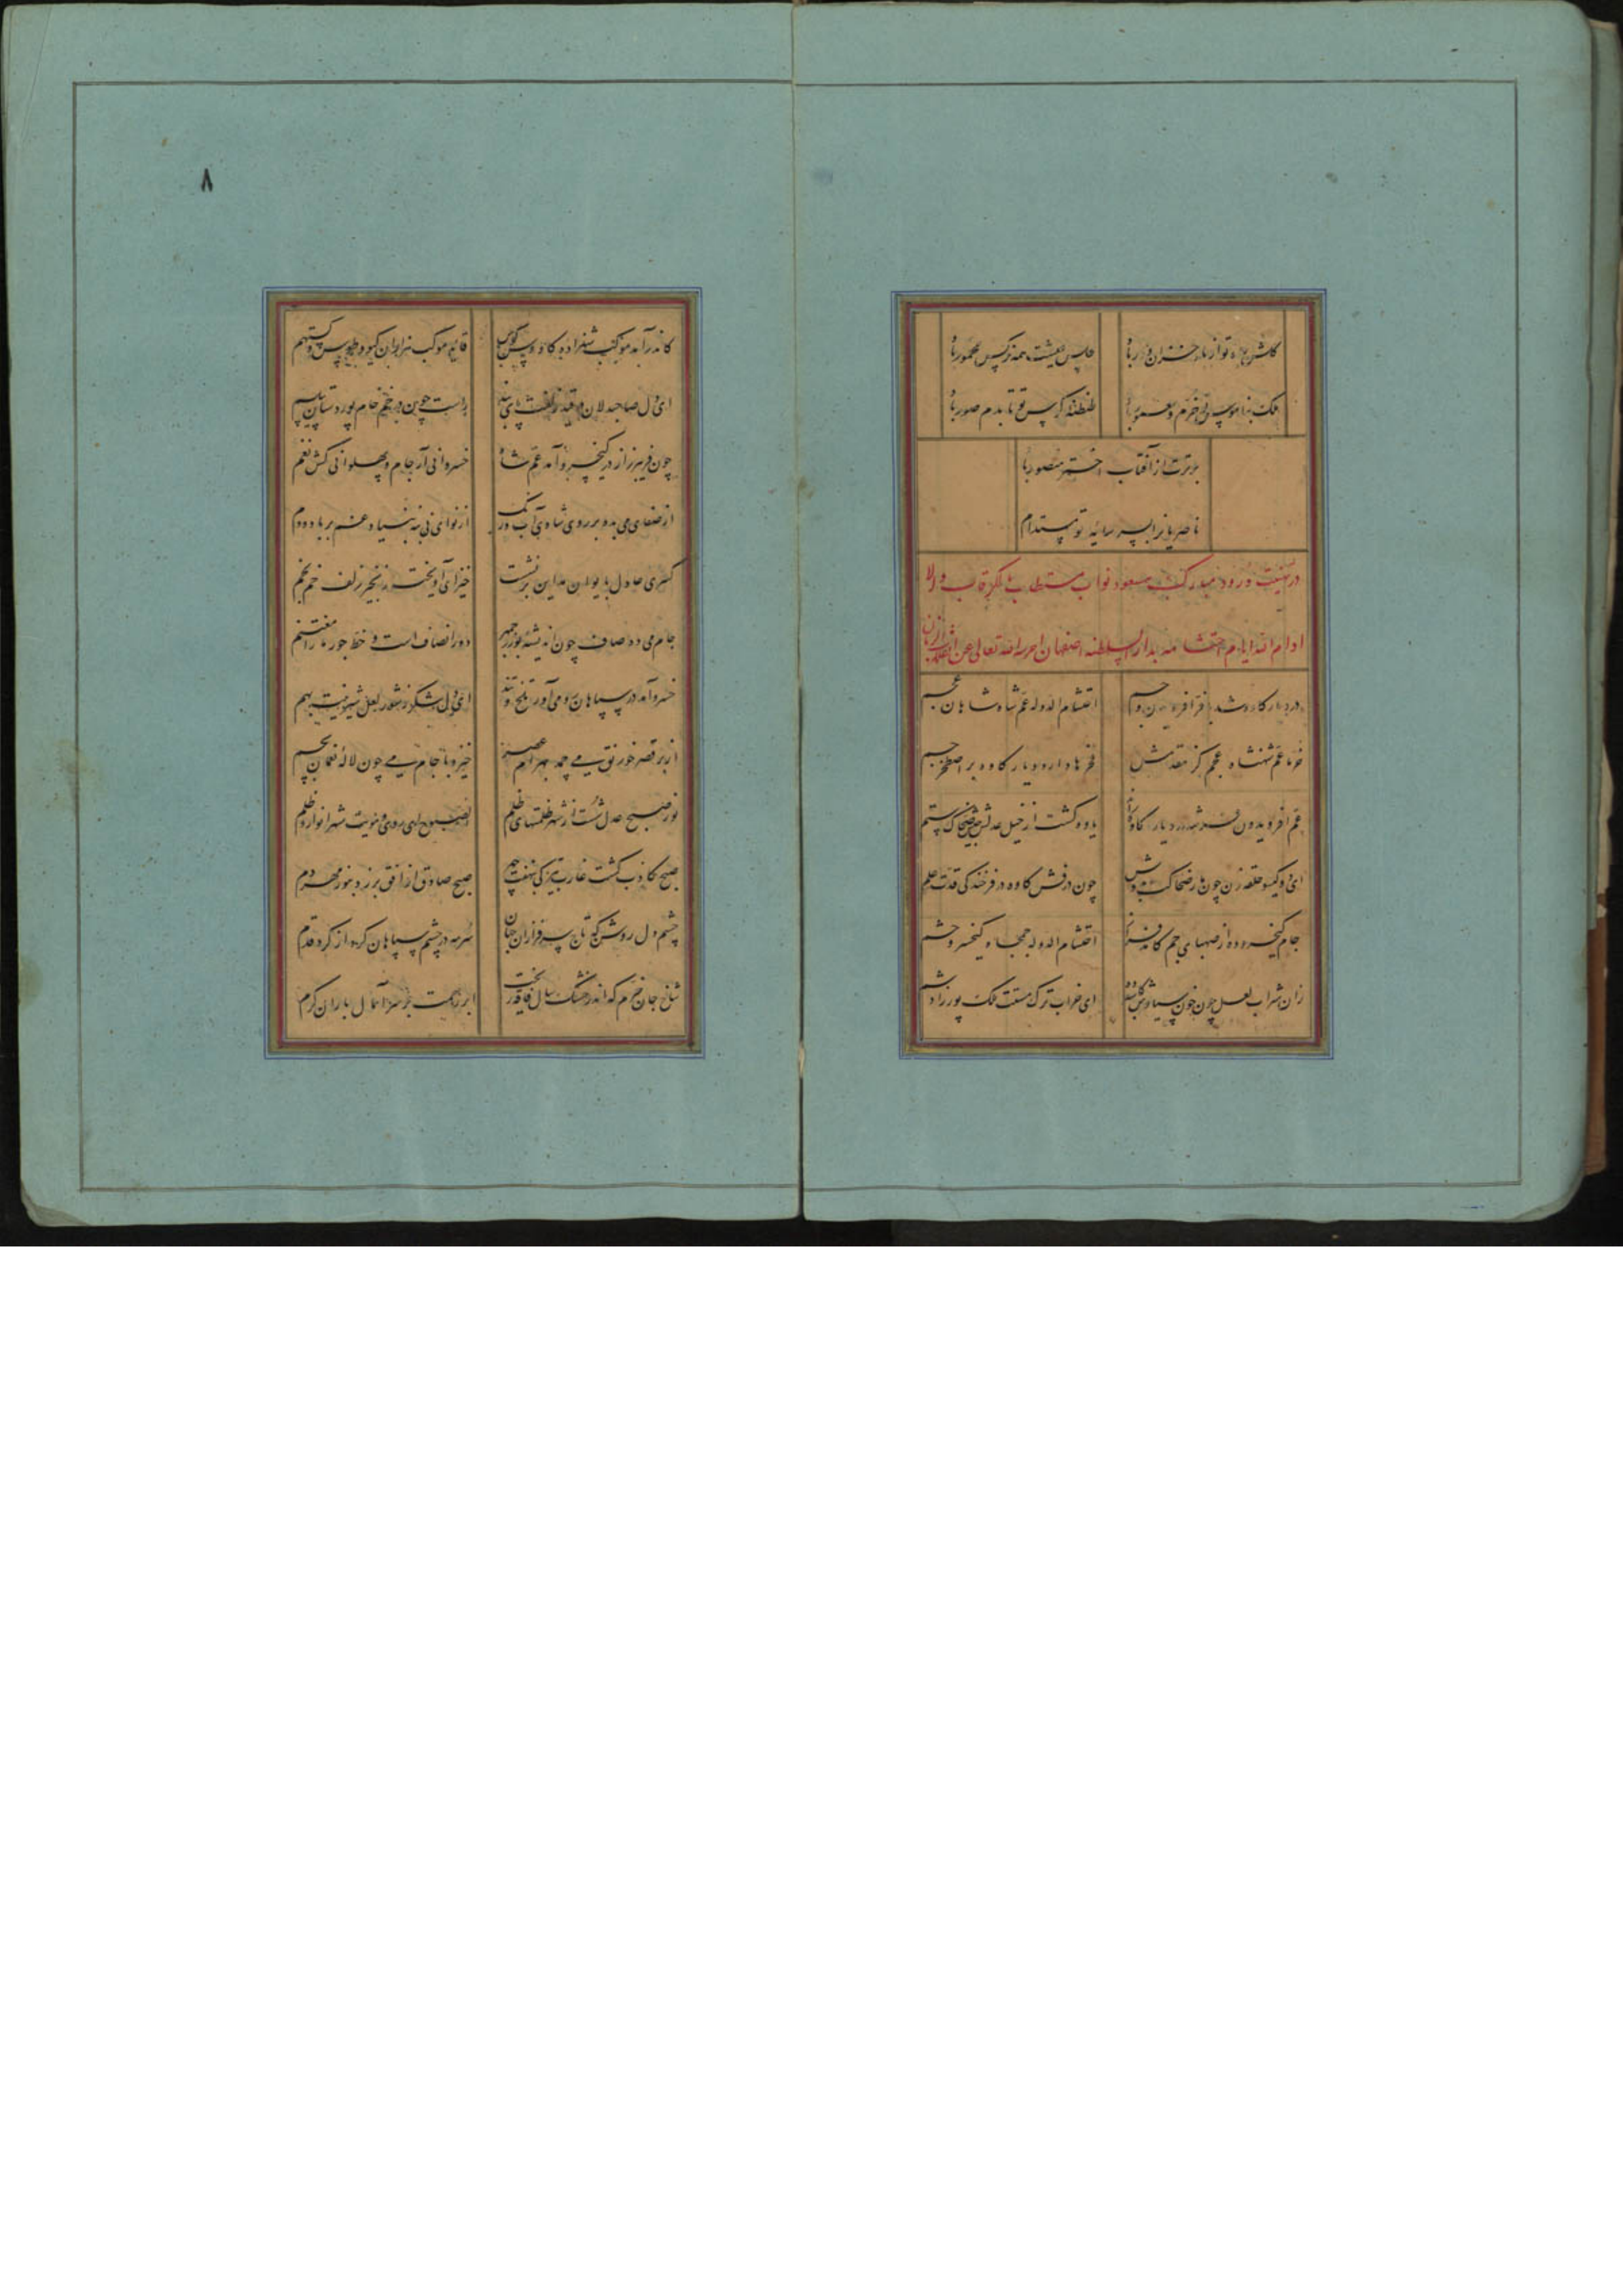 گلشن جاه تو از باد خزان دور باد
مجلس عیشت همه نرگس مخمور باد
ملک بناموس تو خرم و معمور باد
طنطنه کوس تو تا بدم صور باد
برترت از آفتاب اختر منصور باد
ناصر یا نرا بسر سایه تو مستدام
در تهنیت ورود مبارک مسعود نواب مستطاب مالک رقاب والا
ادام الله ایام احتشامه بدار السلطنه اصفهان احرسه الله تعالی عن
در دیار کاوه شد با فر افریدون و جم
احتشام الدوله عم شاه شاهان عجم
خرما عم شهنشاه عجم کز مقدمش
فخرها دارد دیار کاوه بر اصطخر جم
عم افریدون فر شه در دیار کاوه راند
یاوه گشت از خیل عدلش جیش ضحاک ستم
ای دو گیسو حلقه زن چون مار ضحاکت بدوش
چون درفش کاوه در فرخندگی قدت علم
جام کیخسرو ده از صهبای جم کامد فراز
احتشام الدوله جمجاه کیخسرو حشم
زان شراب لعل چون خون سیاوش کاس ده
ای خراب ترک مستت ملک پور زادشم
کاندر آمد موکب شهزاده کاوس کوس
قاید موکب سر ایران گیو و طوس و گستهم
ای دل صاحبدلان در قید زلفت پای بند
راست چون در خم خام پور دستان پیلسم
چون فریبرز از در کیخسرو آمد عم شاه
خسروانی آر جام و پهلوانی کش نغم
از صفای می بده بر روی شاهی آب و رنگ
از نوای نی بنه بنیاد غم بر باد و دم
کسری عادل بایوان مداین برنشست
خیز ای آویخته زنجیر زلف خم بخم
جام می ده صاف چون اندیشه بوزرجمهر
دور انصاف است و خط جور ما را مغتنم
خسرو آمد در سپاهان رو می آور تلخ و تند
ای دل شکر ز شور لعل شیرینت بهم
از بر قصر خورنق می چمد بهرام عصر
خیز و با جام می چون لاله نعمان بچم
نور صبح عدل شست از شهر ظلمتهای ظلم
الصبوح ای روی و مویت شهر انوار و ظلم
صبح کاذب گشت غارب تیرگی بنهفت چهر
صبح صادق از افق برزد بنور مهر دم
چشم دل روشن که تاج سرفرازان جهان
سرمه در چشم سپاهان کرد از گرد قدم
شاخ جان خرم که اندر خشک سال فاقه ریخت
ابر رحمت بر سر آمال باران کرم
۸